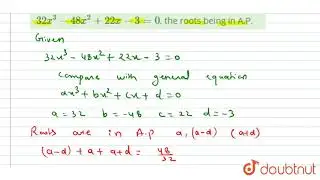 32x³ - 48x² + 22x - 3 = 0. the roots being in A.P.
Given
32x³ - 48x² + 22x - 3 = 0
Compare with general equation
ax³ + bx² + cx + d = 0
a = 32 b = -48 c = 22 d = -3
Roots are in A.p a, (a-d) (a+d)
(a-d) + a + a+d = 48/32
doubtnut